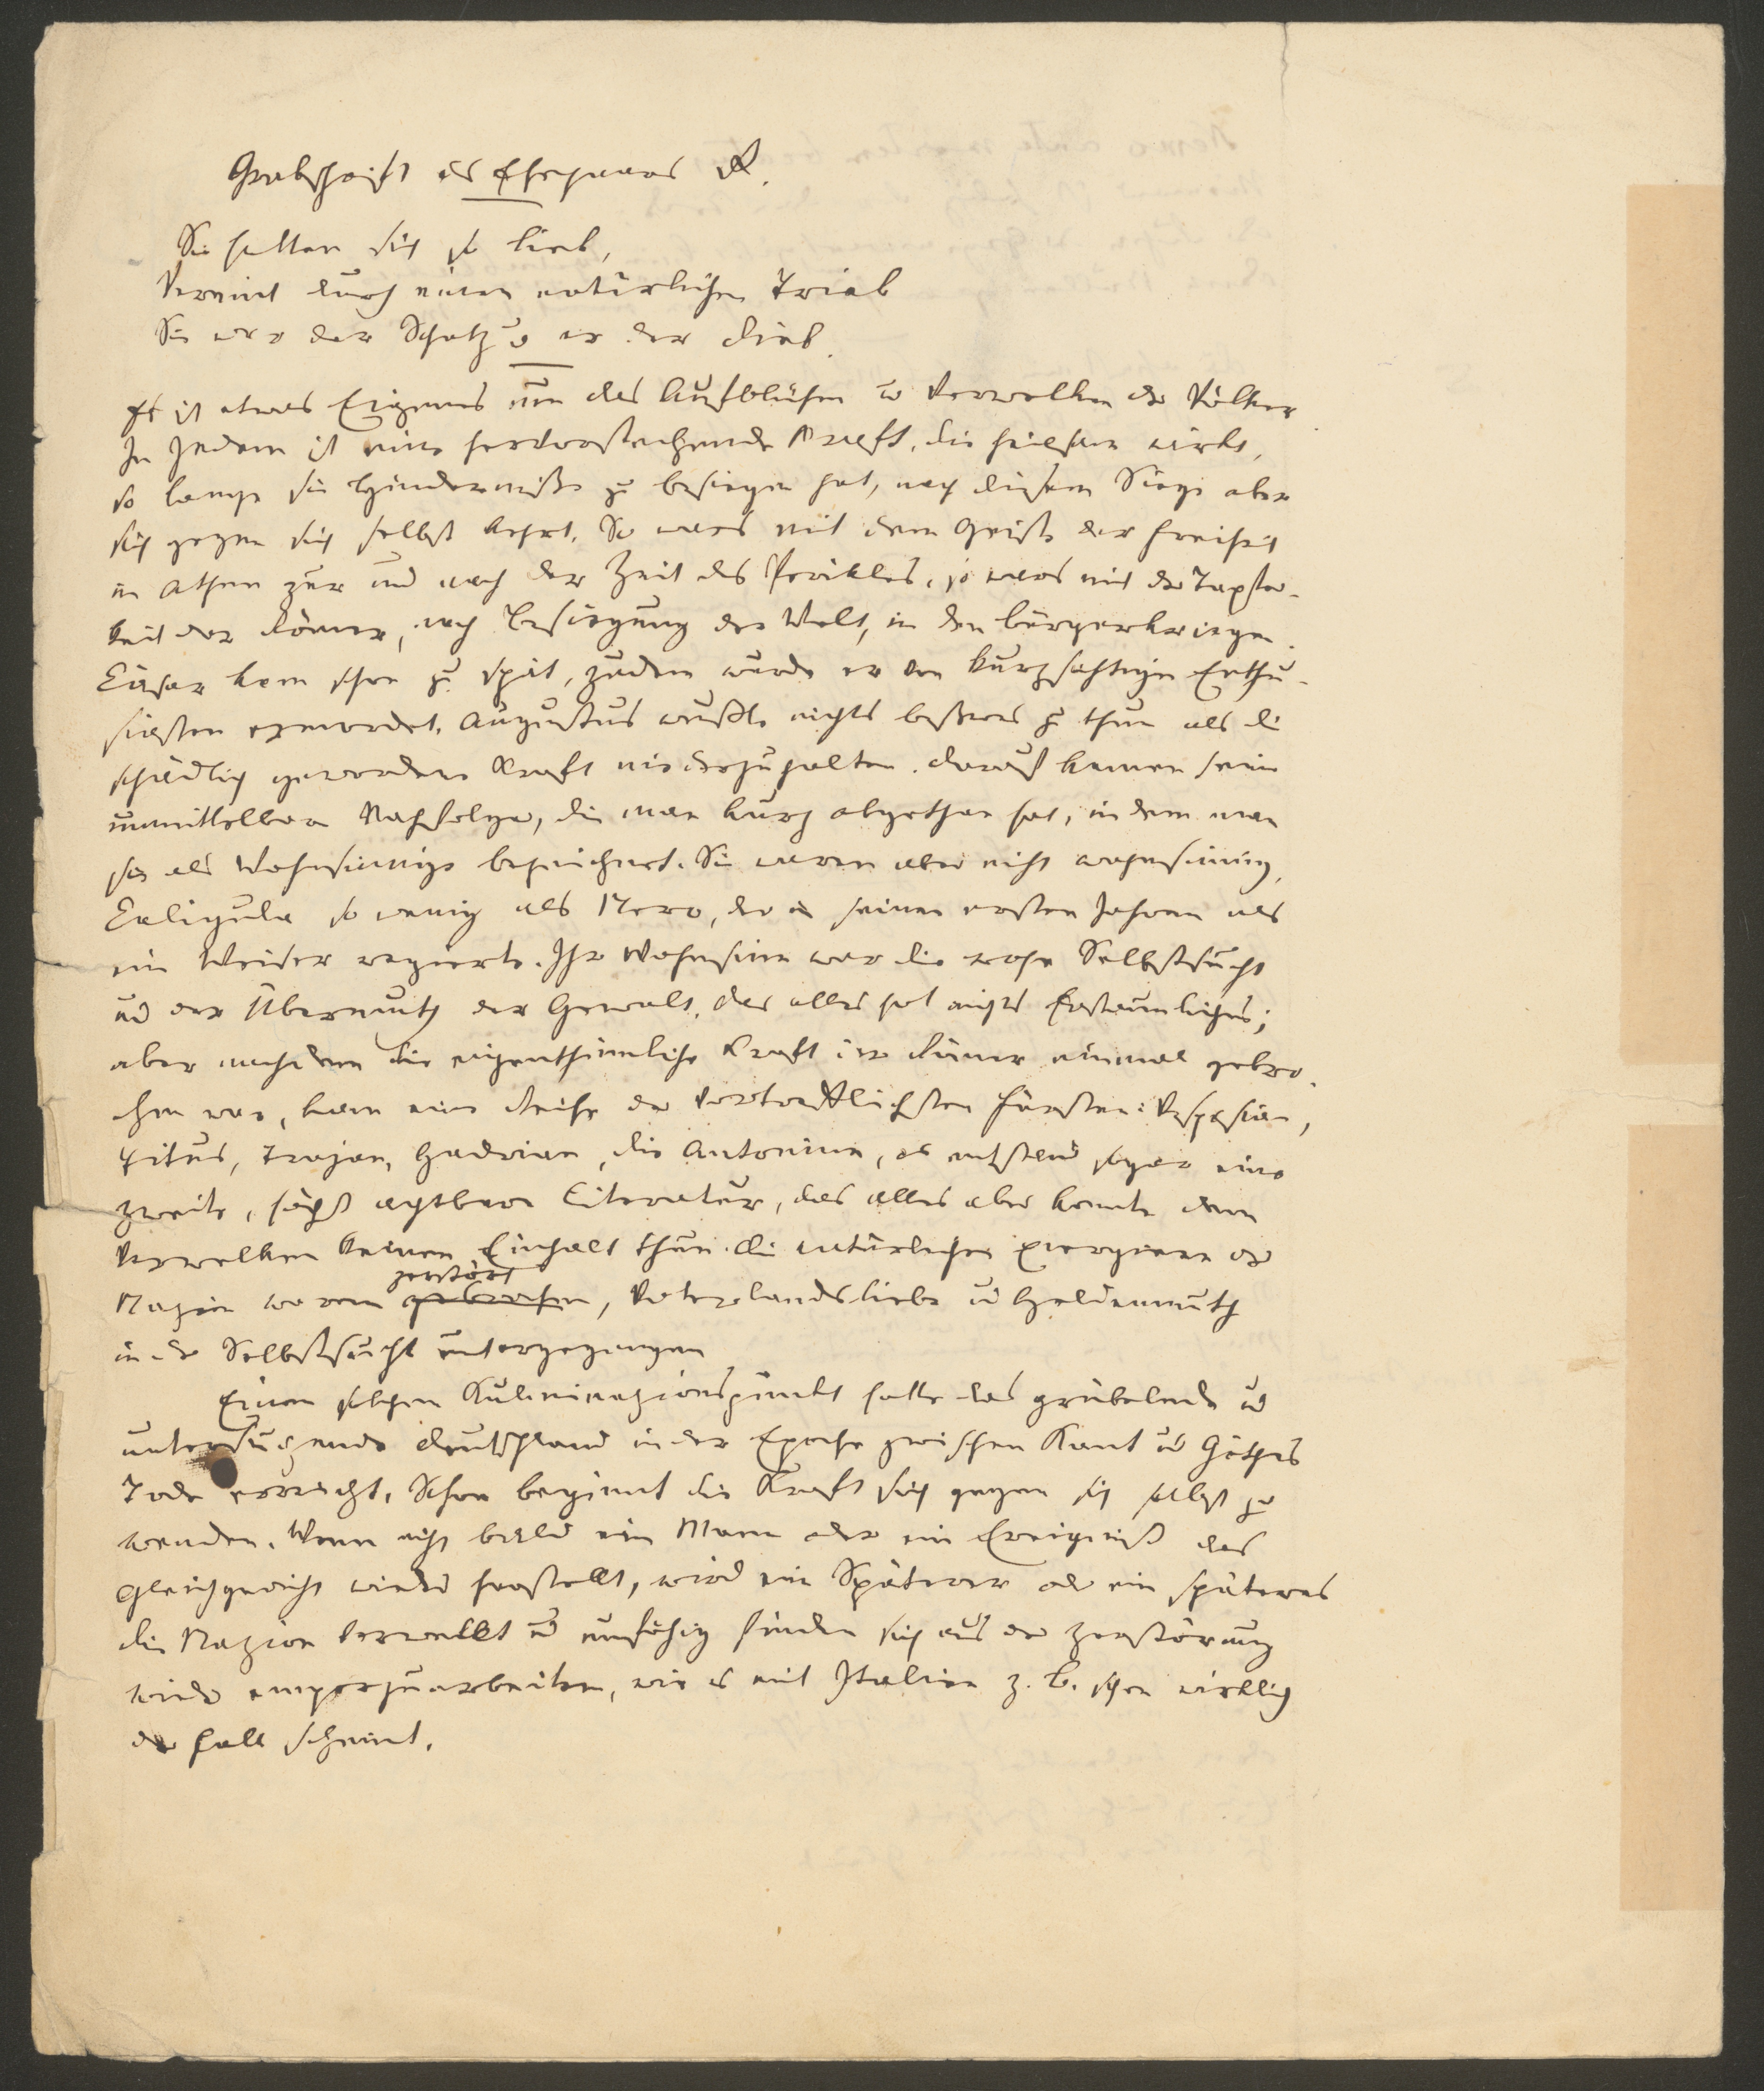 Grabschrift des Ehepaars R.
Sie hatten sich so lieb,
Vereint durch einen natürlichen Trieb
Sie war der Schatz u er der Dieb.
Es ist etwas Eigenes um das Aufblühen u Verwelken der Völker.
In Jedem ist eine hervorstechende Kraft, die heilsam wirkt,
so lange sie Hindernisse zu besiegen hat, nach diesem Siege aber
sich gegen sich selbst kehrt. So wars mit dem Geiste der Freiheit
in Athen zur und nach der Zeit des Perikles, so wars mit der Tapfer-
keit der Römer, nach Besiegung der Welt, in den Bürgerkriegen.
Cäsar kam schon zu spät, zudem wurde er von kurzsichtigen Enthu-
siasten ermordet. Augustus wußte nichts besseres zu thun als die
schädlich gewordene Kraft niederzuhalten. Darauf kamen seine
unmittelbaren Nachfolger, die man kurz abgethan hat, in dem man
sie als Wahnsinnige bezeichnet. Sie waren aber nicht wahnsinnig,
Caligula so wenig als Nero, der in seinen ersten Jahren als
ein Weiser regierte. Ihr Wahnsinn war die rohe Selbstsucht
und der Übermuth der Gewalt. Das alles hat nichts Erstaunliches;
aber nachdem die eigenthümliche Kraft der Römer einmal gebro-
chen war, kam eine Reihe der vortrefflichsten Fürsten: Vespasian,
Titus, Trajan, Hadrian, die Antonine, es entstand sogar eine
zweite, höchst achtbare Literatur, das alles aber konnte dem
Verwelken keinen Einhalt thun. Die natürlichen Energieen der
zerstört
Nazion waren gebrochen, Vaterlandsliebe und Heldenmuth
in der Selbstsucht untergegangen
Einen solchen Kulminazionspunkt hatte das grübelnde und
untersuchende Deutschland in der Epoche zwischen Kant und Göthes
Tode erreicht. Schon beginnt die Kraft sich gegen sich selbst zu
wenden. Wenn nicht bald ein Mann oder ein Ereigniß das
Gleichgewicht wieder herstellt, wird ein Späterer oder ein späteres
die Nazion verwelkt und unfähig finden sich aus der Zerstörung
wieder emporzuarbeiten, wie es mit Italien z. B. schon wirklich
der Fall scheint.